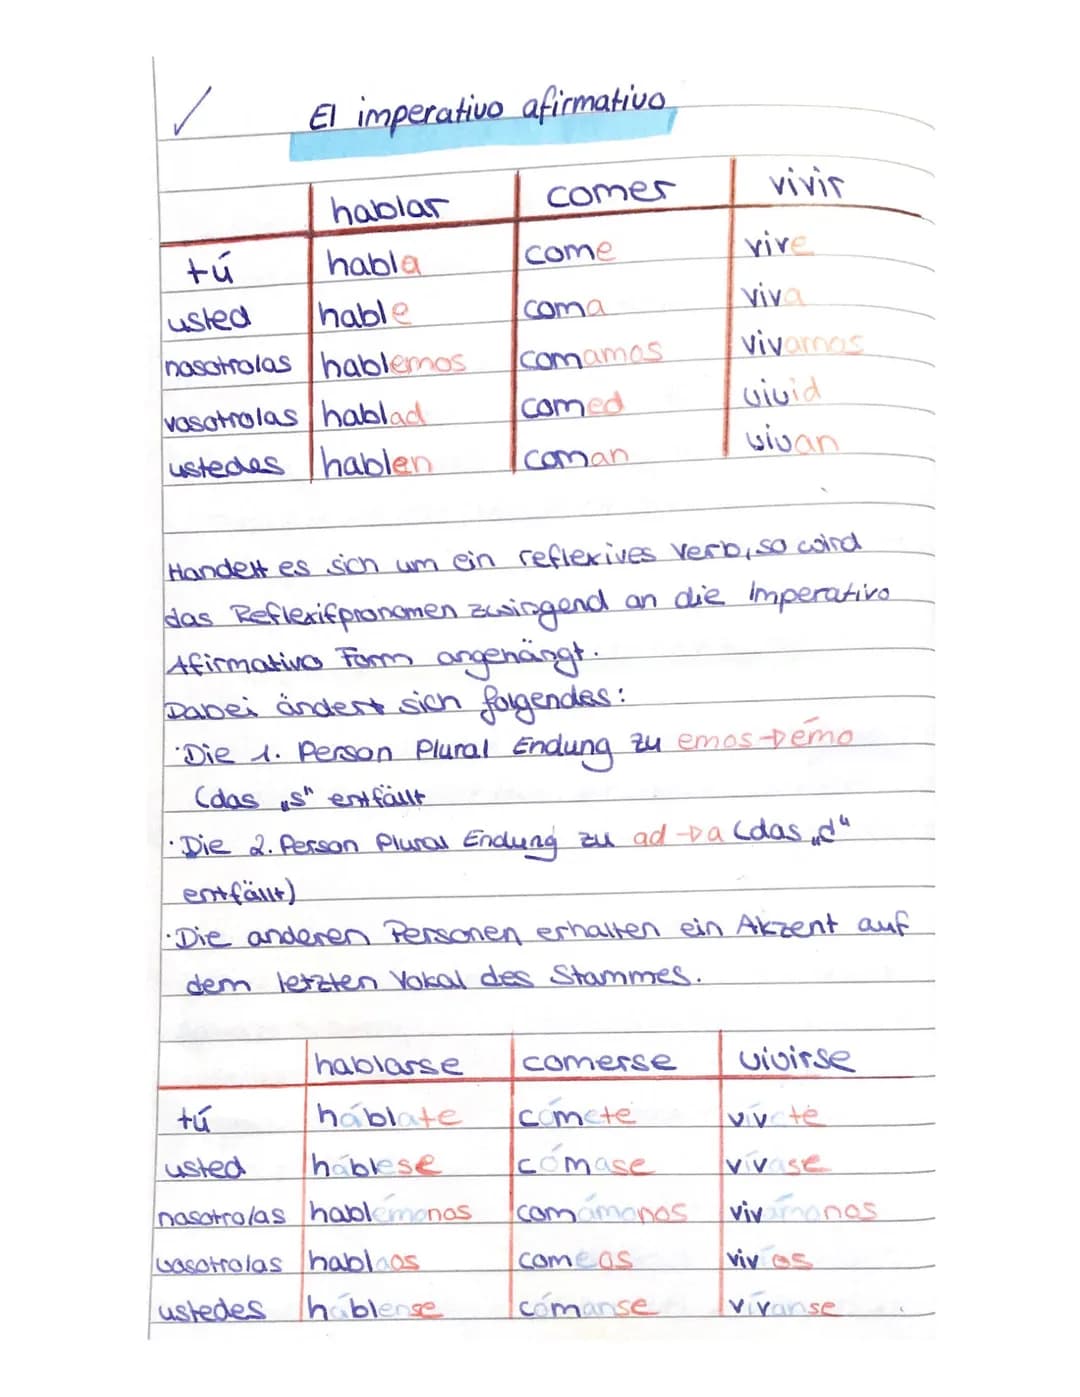 El imperativo afirmativo
hablar comer vivir
tú habla come vive
usted hable coma viva
nosotro/as hablemos comamos vivamos
vosotro/as hablad comed vivid
ustedes hablen coman vivan
Handelt es sich um ein reflexives Verb, so wird
das Reflexifpronomen zwingend an die Imperativo
Afirmativo Form angehängt.
Dabei ändert sich folgendes:
·Die 1. Person Plural Endung zu emos→émo
(das „s" entfällt
·Die 2. Person Plural Endung zu ad→a (das „d"
entfällt)
·Die anderen Personen erhalten ein Akzent auf
dem letzten Vokal des Stammes.
hablarse comerse vivirse
tú háblate cómete vívete
usted háblese cómase vívase
nosotro/as hablémonos comámonos vivámonos
vosotro/as hablaos comeos vivíos
ustedes háblense cómanse vívanse